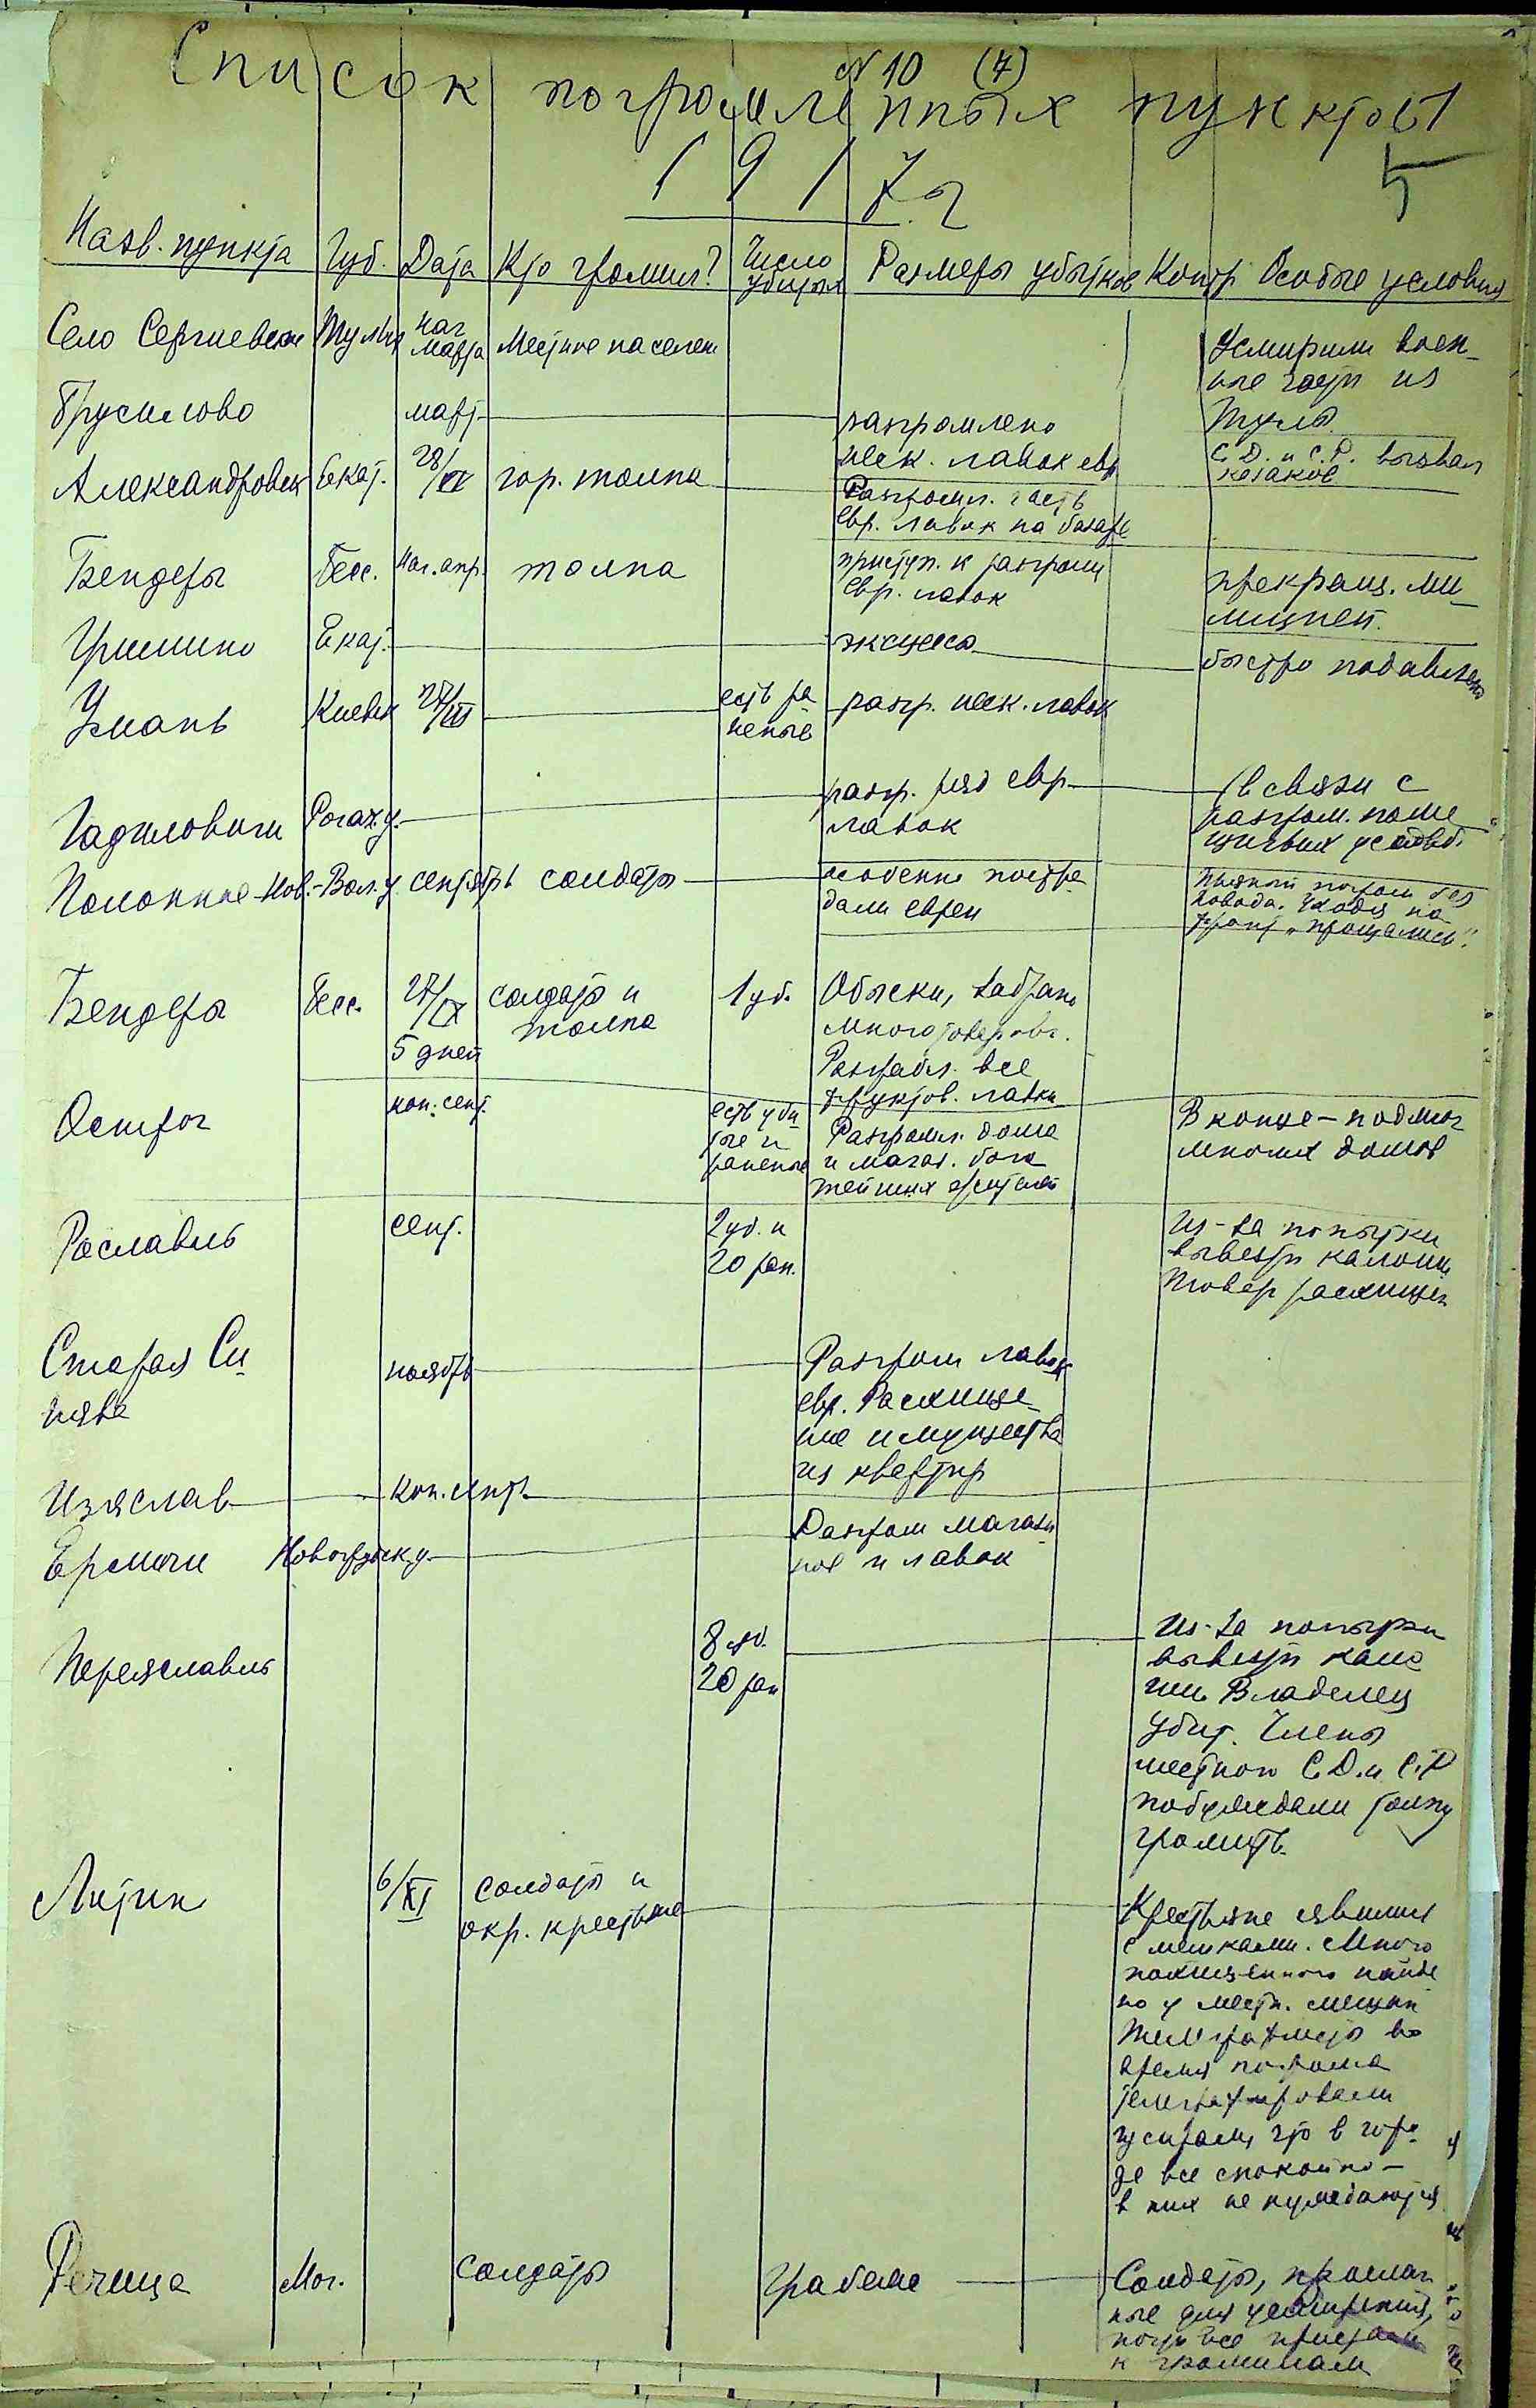 N 10 (7)
Список погромленных пунктов
1917 г
5
Назв. пункта Губ. Дата Кто громил? Число убитых Размеры убытков Контр Особые условия
Село Сергиевское Тульск нач марта Местное населен Усмирили воен-
ные части из
Тулы
Брусилово март разгромлено
неск. лавок евр
Александровск Екат. 28/ гор. толпа Разгромл. часть
евр. лавок на базаре
С. Д. и С. Р. вызвал
казаков
Бендеры Бесс. Нач. апр. толпа приступ. к разгрому
евр. лавок
прекращ. ми-
лицией.
Гришино Екат. эксцесс быстро подавлено
Умань Киевск 27/III есть ра-
неные
разгр. неск. лавок
Гадиловичи Рогач. у. разгр. ряд евр
лавок
(в связи с
разгром. поме
щичьих усадеб.
Полонное Нов.-Вол. у. сентябрь солдаты особенно постра-
дали евреи
пьяный погром без
повода. Уходя на
фронт "прощались".
Бендеры Бесс. 27/IX
5 дней
солдаты и
толпа
1 уб. Обыски, забрано
много товаров.
Разграбл. все
фруктов. лавки
Острог кон. сент. есть уби
тые и
раненые
Разгромл. дома
и магаз. бога
тейших жителей
В конце — поджог
многих домов
Рославль сент. 2 уб. и
20 ран.
Из-за попытки
вывезти калоши
Товар расхищен
Старая Си-
нява
ноябрь Разгром лавок
евр. Расхище-
ние имущества
из квартир
Изяслав кон. сент.
Еремичи Новогрудск. у. Разгром магази-
нов и лавок
Переяславль 8 уб.
20 ран
Из-за попытки
вывезти кало
ши. Владелец
убит. Члены
местного С. Д. и С. Р
побуждали толпу
громить.
Литин 6/XI солдаты и
окр. крестьяне
Крестьяне явились
с мешками. Много
похищенного найде
но у местн. мещан
Телеграфисты во
время погрома
телеграфировали
гусарам, что в горо-
де все спокойно —
в них не нуждаются
Речица Мог. солдаты Грабежи Солдаты, прислан
ные для усмирения,
почти все пристали
к громилам